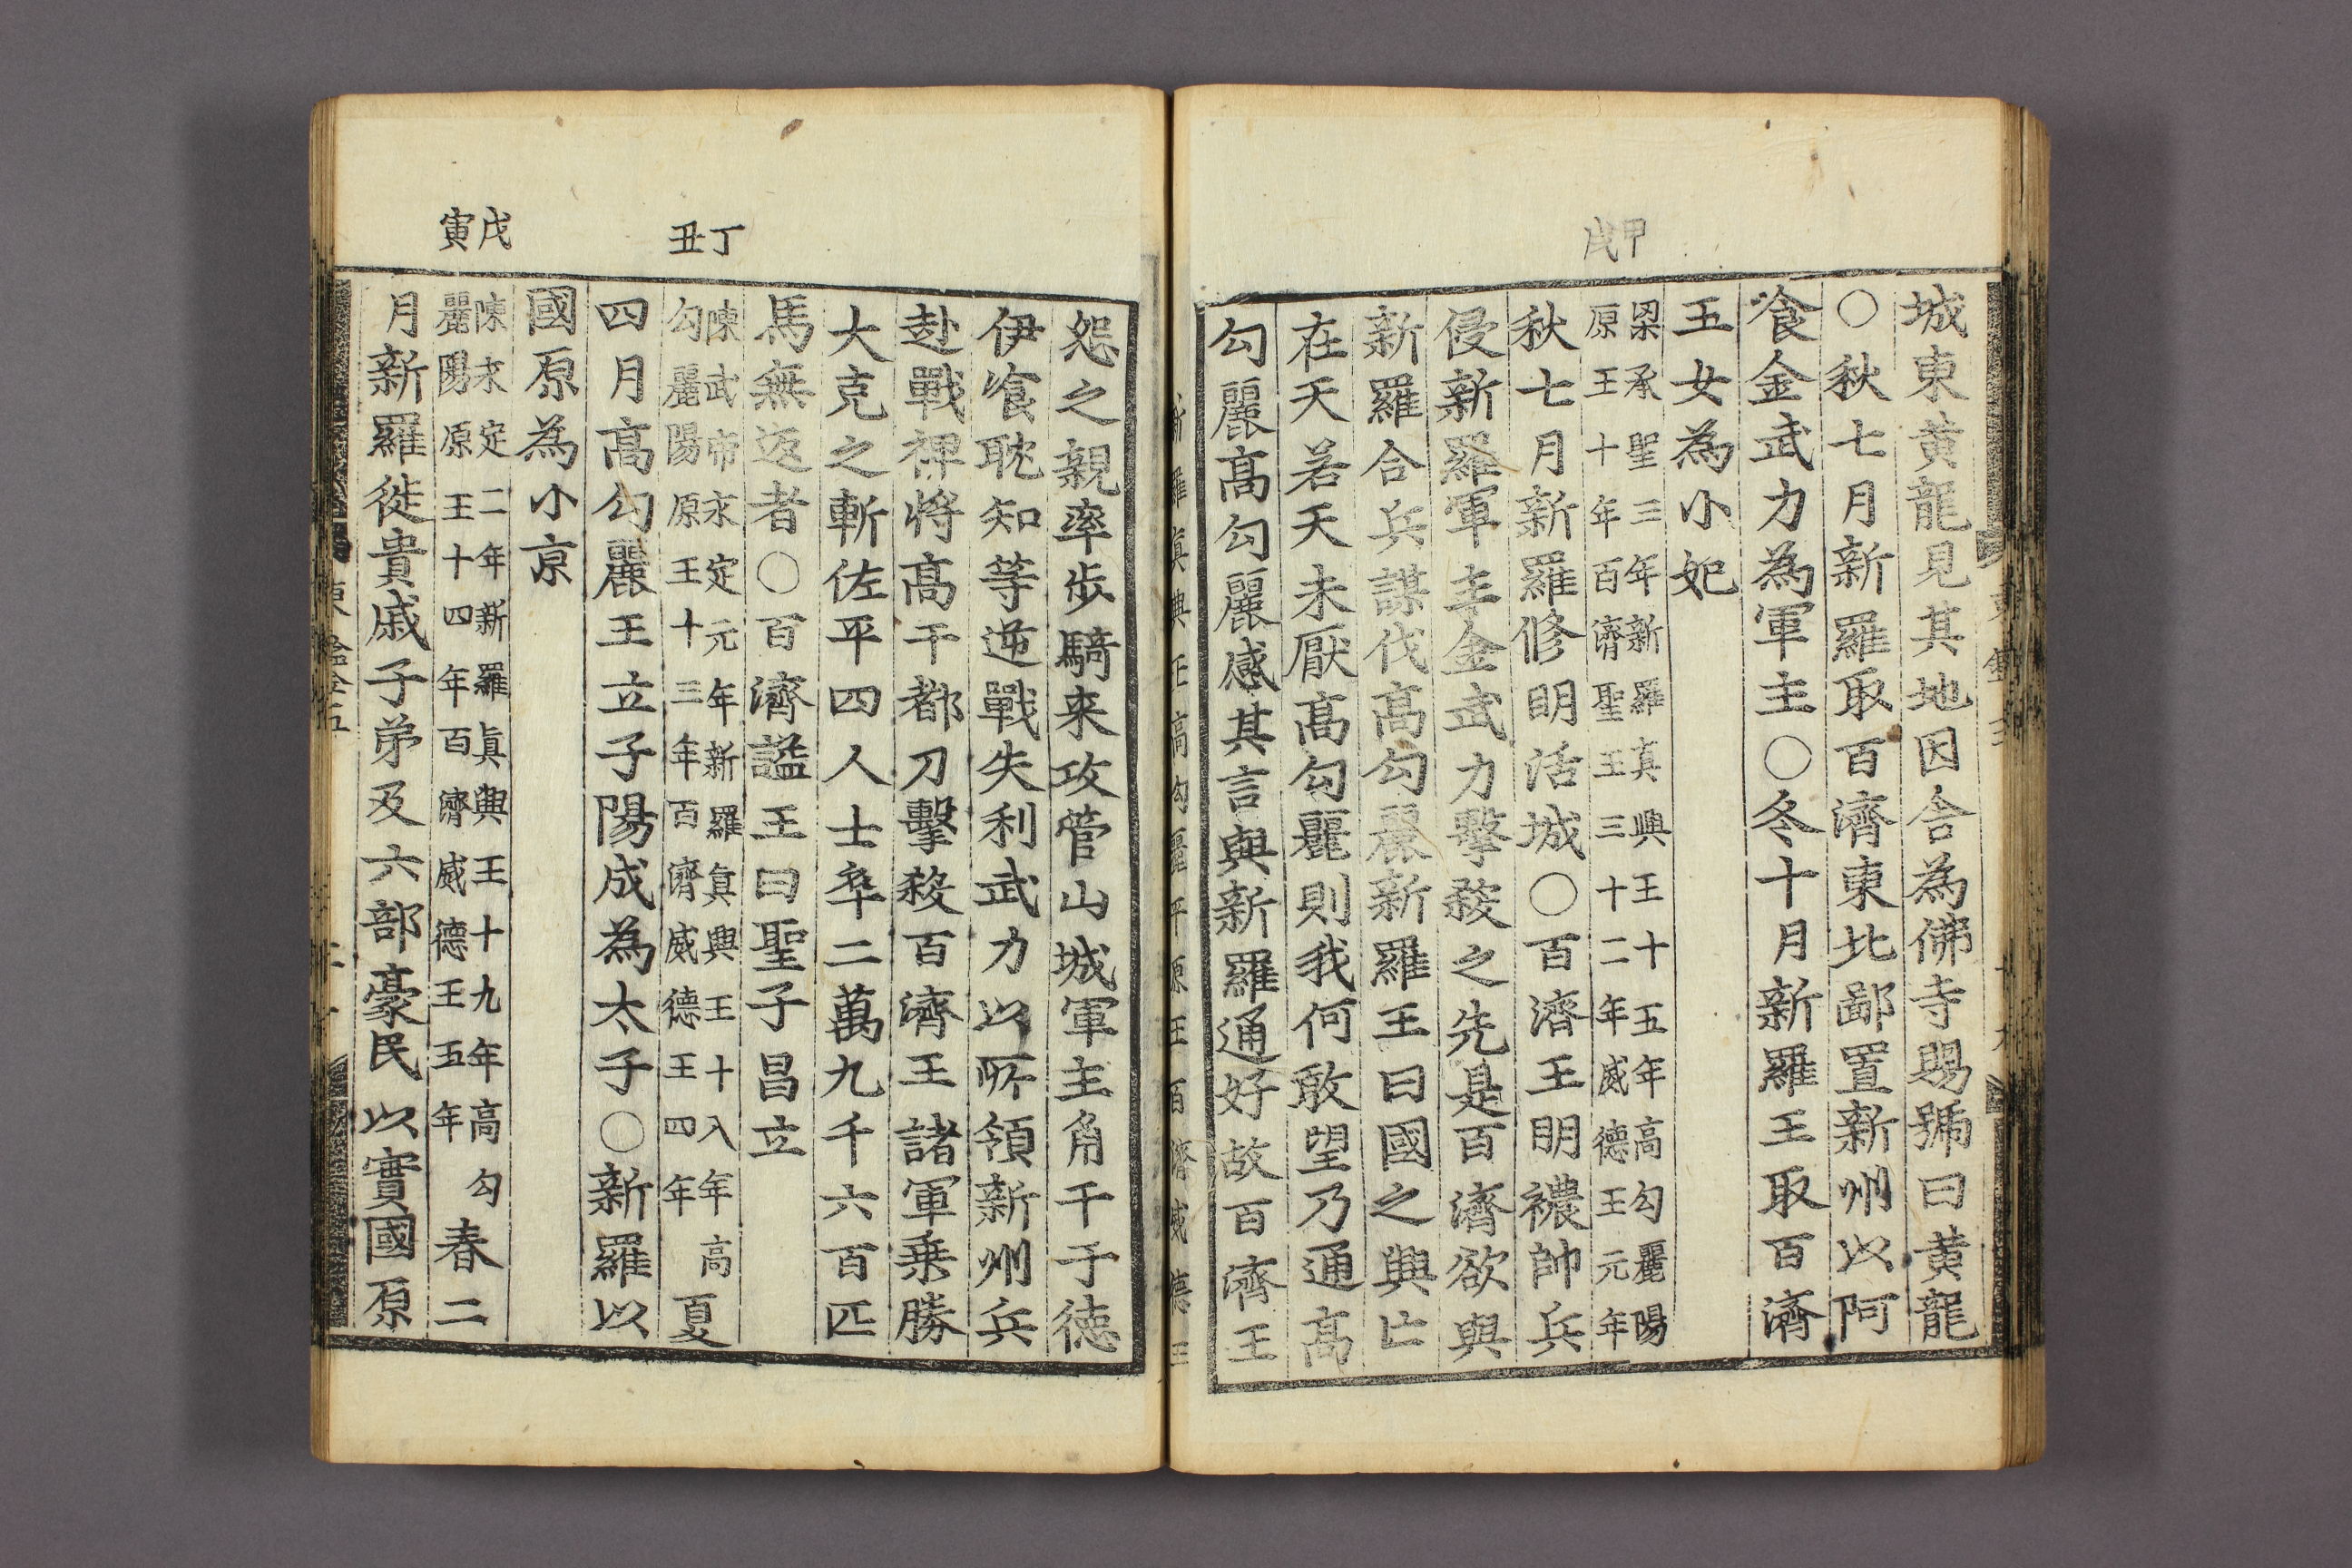 甲戌
城東黄龍見其地因舍為佛寺賜號曰黄龍
○秋七月新羅取百濟東北鄙置新州以阿
飡金武力為軍主○冬十月新羅王取百濟
王女為小妃
梁承聖三年新羅真興王十五年高勾麗陽
原王十年百濟聖王三十二年威德王元年
秋七月新羅修明活城○百濟王明襛帥兵
侵新羅軍主金武力擊殺之先是百濟欲與
新羅合兵謀伐髙勾麗新羅王曰國之興亡
在天若天未厭髙勾麗則我何敢望乃通髙
勾麗髙勾麗感其言與新羅通好故百濟王
新羅真興王高勾麗平原王百濟威德王
丁丑
戊寅
怨之親率步騎来攻管山城軍主角干于德
伊飡耽知等逆戰失利武力以所領新州兵
赴戰裨將髙干都刀擊殺百濟王諸軍乗勝
大克之斬佐平四人士卒二萬九千六百匹
馬無返者○百濟謚王曰聖子昌立
陳武帝永定元年新羅真興王十八年高
勾麗陽原王十三年百濟威德王四年夏
四月髙勾麗王立子陽成為太子○新羅以
國原為小京
陳永定二年新羅真興王十九年高勾
麗陽原王十四年百濟威德王五年春二
月新羅徙貴戚子弟及六部豪民以實國原